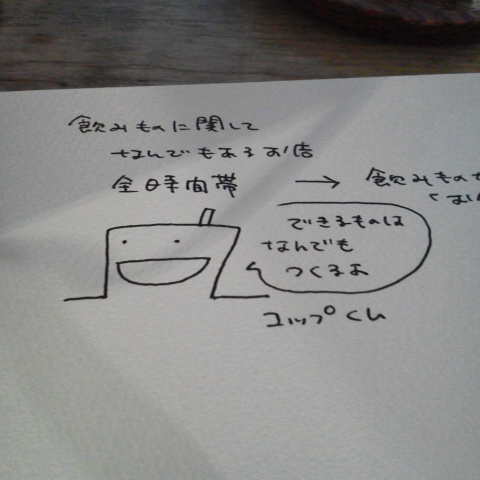 飲みものに関して
なんでもあるお店
全日時間帯 → 飲みもの
できるものは
なんでも
つくるよ
コップくん